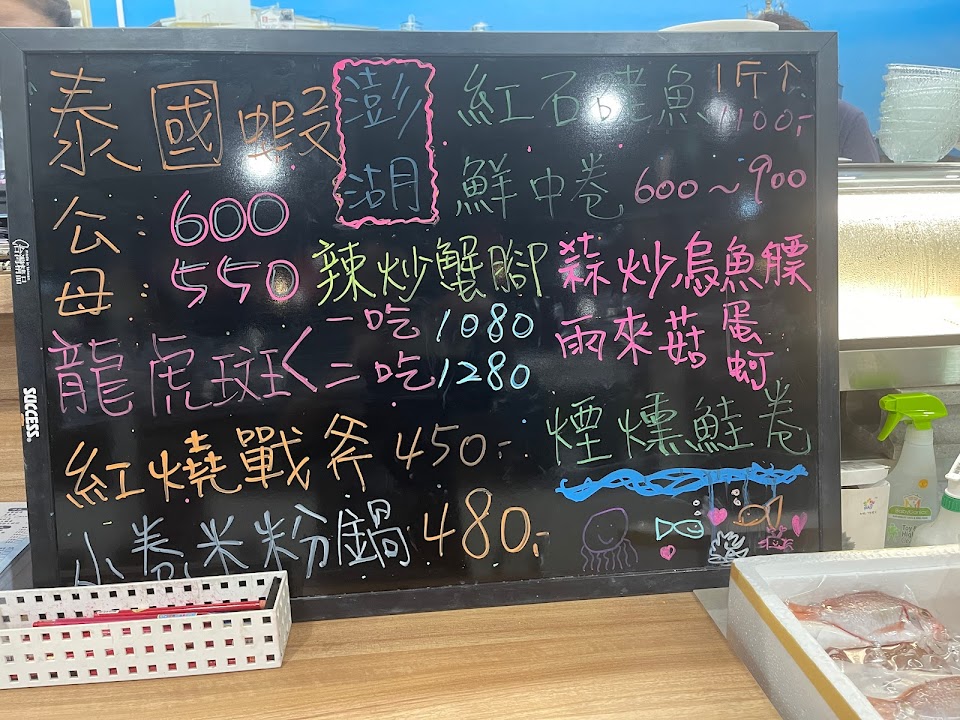 泰國蝦
公：600
母：550
澎湖
紅石 魚 1斤↑ 1100.-
鮮中卷 600～900
辣炒蟹腳
蒜炒烏魚鰾
雨來菇 蛋 蚵
龍虎斑< 一吃 1080
二吃 1280
紅燒戰斧 450.-
煙燻鮭卷
小卷米粉鍋 480.-
SUCCESS